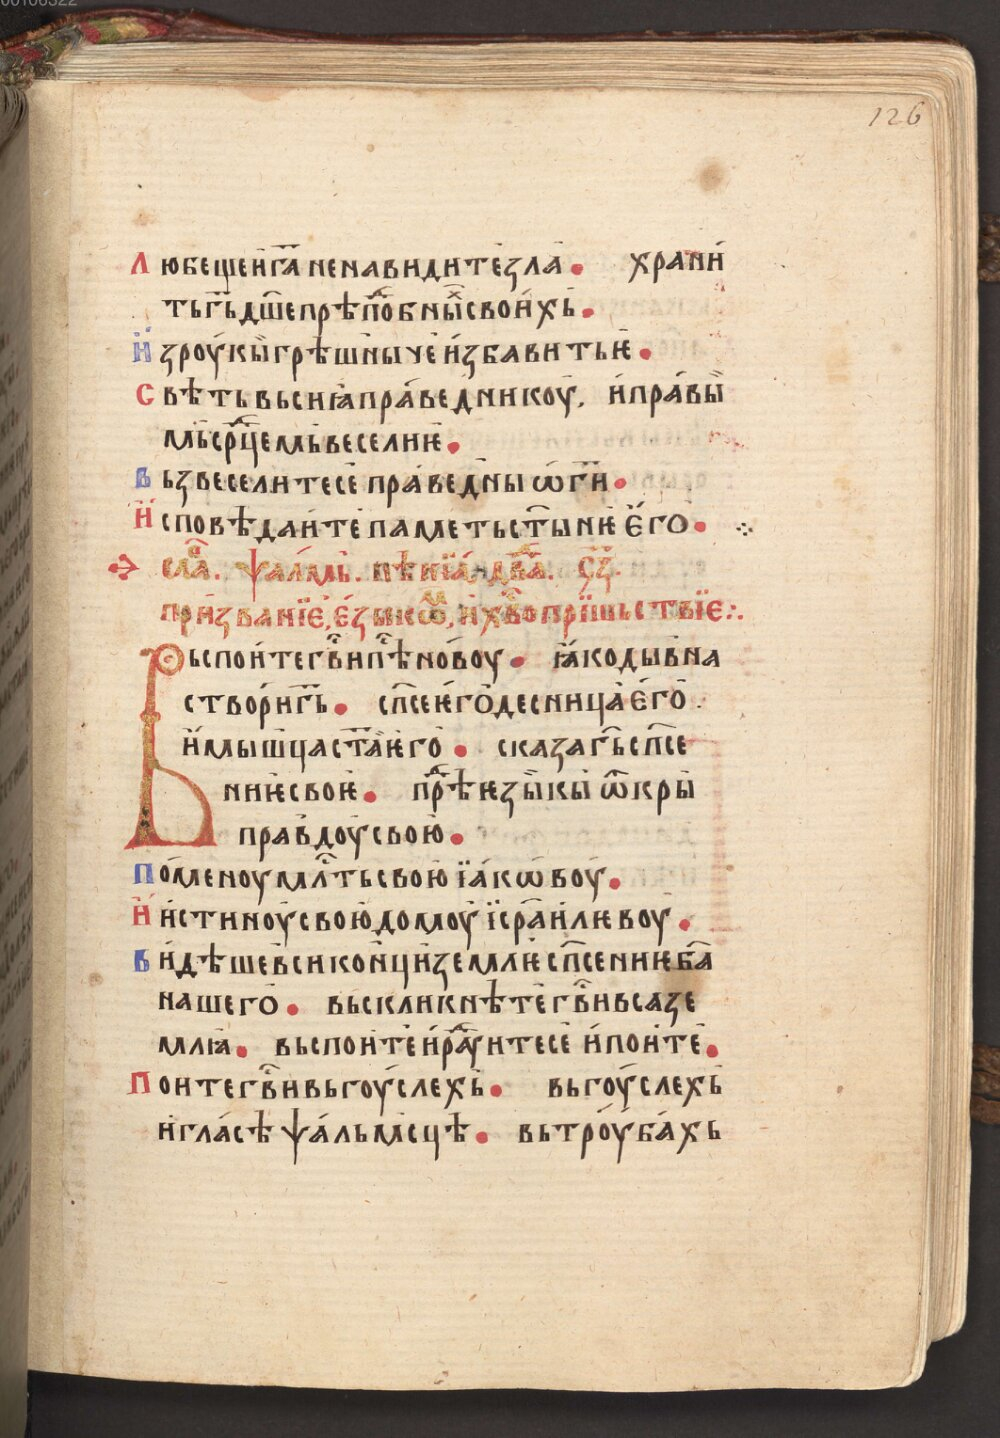 00106322
126
Любещеи г҃а ненавидите зла • храни́
ть г҃ь дш҃е прѣпⷣобныⷯ своихь •
Й з роу́кы грѣшны́че и́збавить ѥ •
Свѣть вьсиꙗ пра́веднникоу, и́ пра́вы
мь срⷣцемь веселиѥ •
Вьзвеселитесе пра́ведны ѡ г҃и •
Исповѣдаите паметь ст҃ынѥ ѥ́го •
сла́ⷡ. ѱал́мь. пѣниꙗ́ дв҃да. ч҃з.
при́званїе, е́зыкѡⷨ, и́ хв҃о прїшьствїе ⁘
Вьспоите г҃ви пѣⷭ новоу • ꙗ́ко дывна
створи́ г҃ь • сп҃се ѥго десница е́го
и́ мышца ст҃аꙗ ѥго • сказа г҃ь сп҃се
ниѥ своѥ • прⷣѣ ѥзы́кы ѿкры
правдоу́ свою •
Поменоу млⷭ҇ть свою ї҆а́кѡвоу •
И и́стиноу́ свою домоу́ їсра́илѥвоу •
Ви́дѣше вси кон́ци земллѥ сп҃сениѥ б҃а
нашего • выскликнѣте г҃ви вса зе
млꙗ • вьспоите и́ раⷣуитесе и́ поите •
Поите г҃ви вь гоу́слехь • вь гоу́слехь
и гла́сѣ ѱа́льмсцѣ • вь троу́ба́хь